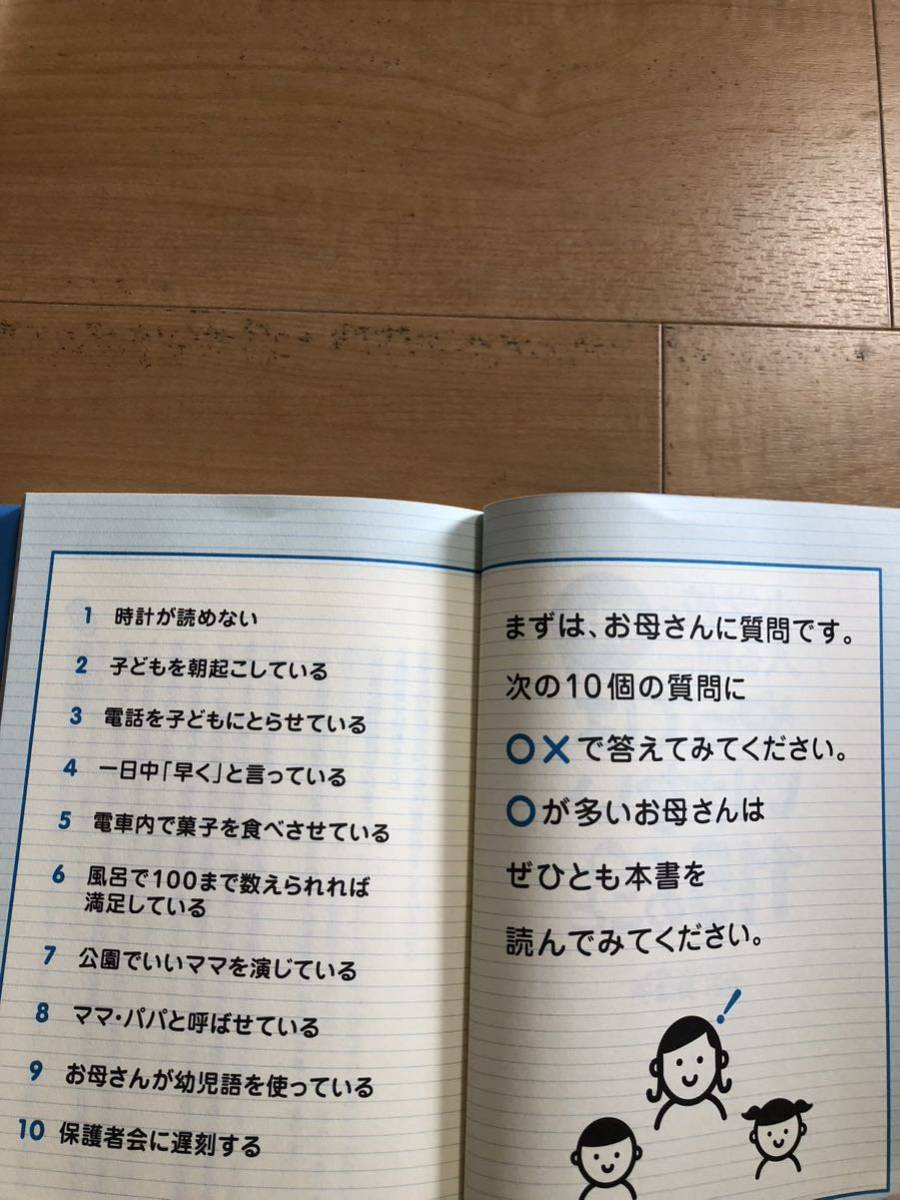 まずは、お母さんに質問です。
次の10個の質問に
○×で答えてみてください。
○が多いお母さんは
ぜひとも本書を
読んでみてください。
!
1 時計が読めない
2 子どもを朝起こしている
3 電話を子どもにとらせている
4 一日中「早く」と言っている
5 電車内で菓子を食べさせている
6 風呂で100まで数えられれば
満足している
7 公園でいいママを演じている
8 ママ・パパと呼ばせている
9 お母さんが幼児語を使っている
10 保護者会に遅刻する